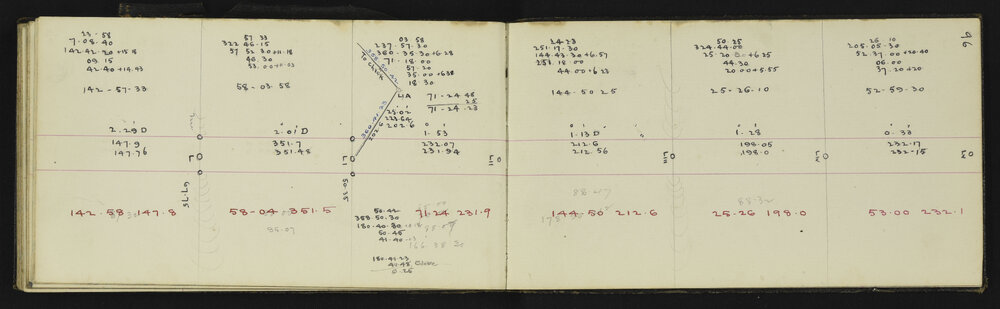 23.58
7-08.40
142-42-20 +15.18
09.15
42-40 +14.43
142-57-33
2.29 D
147.9
147.76
142.58 147.8
57 33
322 46.15
57 52 30 +11.18
40.30
53.00 +11.03
58-03.58
2.01 D
351.7
351.48
58-04 351.5
85.07
67.75
03 58
237-57.30
360-35-30 +6.28
71-18.00
57-20
35.00 +6.38
18 30
71-24-48
25
71-24-23
TO CHECK
202.6
23.02
223.64
202.6
1.53
232.07
231.94
50.35
71-24 231.9
50.44
359.50.30
180.40.30
50.45
41-40
166.38 20
180.41.23
41.48 Close
0.25
24-23
251-17.30
144-43-30 +6.57
251.18 00
44.00 +6 23
144-50 25
1.13 D
212.6
212.56
144-50 212.6
50 25
324-44-00
25-20 +6 25
44.30
20 00 +5.55
25-26-10
1.28
198.05
198.0
88.32
25-26 198.0
26 10
205-05-30
52-37.00 +20.40
06.00
37-20 +20
52-59-30
0.33
232.17
232.15
53.00 232.1